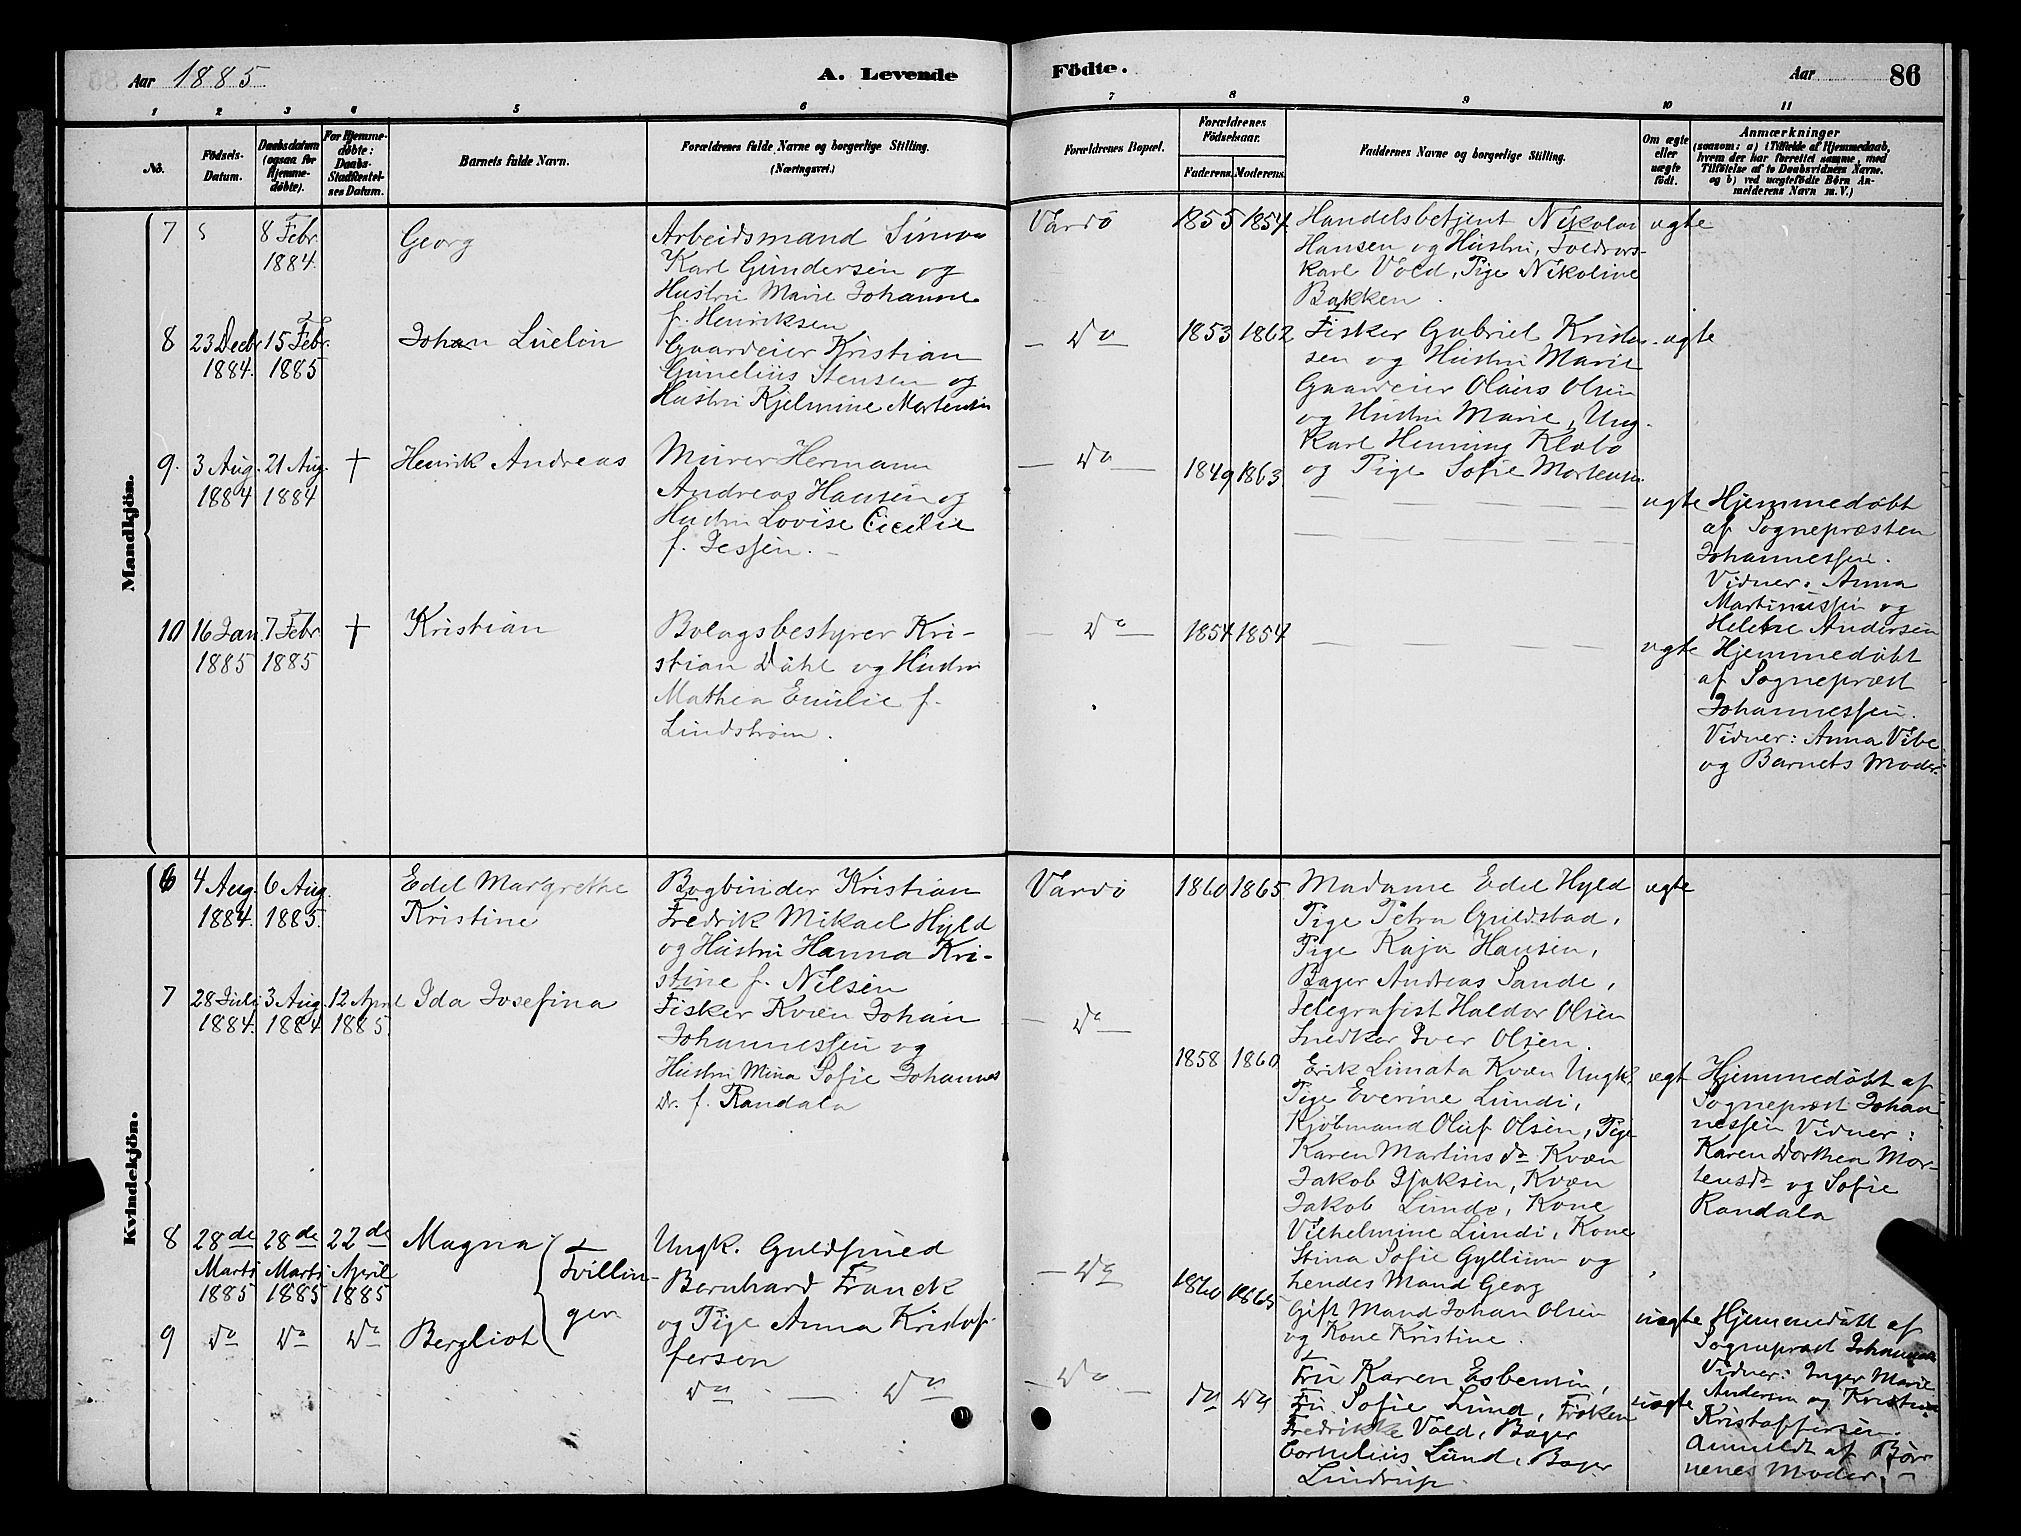 Aar 1885
A. Levende
Födte.
Aar
86
1 2 3 4 5 6 7 8 9 10 11
No.
Födsels-
Datum.
Daabsdatum
(ogsaa for
Hjemme-
döbte).
For Hjemme-
döbte:
Daabs-
Stadfæstel-
ses Datum.
Barnets fulde Navn.
Forældrenes fulde Navne og borgerlige Stilling.
(Næringsvei.)
Forældrenes Bopæl.
Forældrenes
Födselsaar.
Faderens. Moderens.
Faddernes Navne og borgerlige Stilling.
Om ægte
eller
uægte
födt.
Anmærkninger
(saasom: a) i Tilfælde af Hjemmedaab,
hvem der har forrettet samme, med
Tilföielse af to Daabsvidners Navne.
og b) ved uægtefödte Börn An-
melderens Navn m. V.)
Mandkjön.
7
8 Febr.
1884.
Georg
Arbeidsmand Simon
Karl Gundersen og
Hustru Marie Johanne
f. Henriksen
Vardö
1855 1854
Handelsbetjent Nikolai
Hansen og Hustru,
karl Vold, Pige Nikoline
Bakken.
ægte
8
23 Decbr.
1884.
15 Febr.
1885
Johan Luelin
Gaardeier Kristian
Gunelius Stensen og
Hustru Kjelmine Mortensen
Do
1853 1862
Fisker Gabriel Kristen-
sen og Hustru Marie
Gaardeier Olaus Olsen
og Hustru Marie, Ung-
karl Henning Klæbo
og Pige Sofie Mortensen.
ægte
9.
3 Aug.
1884
21 Aug.
1884
†
Henrik Andreas
Murer Hermann
Andreas Hansen og
Hustru Lovise Cicilie
f. Jessen.
Do
1849 1863
ægte
Hjemmedöbt
af Sognepræsten
Johannessen.
Vidner: Anna
Martinussen og
Helene Andersen
10
16 Jan.
1885
7 Febr
1885
†
Kristian
Bolagsbestyrer Kri-
stian Dahl og Hustru
Mathea Emilie f.
Lindström.
Do
1854 1854
ægte
Hjemmedöbt
af Sognepræst
Johannessen.
Vidner: Anna Vibe
og Barnets Moder.
Kvindekjön.
6
4 Aug.
1884.
6 Aug.
1885.
Edel Margrethe
Kristine
Bogbinder Kristian
Fredrik Mikael Hyld
og Hustru Hanna Kri-
stine f. Nilsen
Vardö
1860 1865
Madame Edel Hyld
Pige Petra Guldstad,
Pige Kaja Hansen,
Bager Andreas Sande,
Telegrafist Haldor Olsen
Snedker Iver Olsen.
ægte
7
28 Juli
1884.
3 Aug.
1884
12 April
1885.
Ida Josefina
Fisker Kvæn Johan
Johannessen og
Hustru Mina Sofie Johannes
Dr. f. Randala
Do
1858 1860
Erik Limata Kvæn Ungk.
Pige Everine Lundi,
Kjöbmand Oluf Olsen, Pige
Karen Martins Dr Kvæn
Jakob Isaksen, Kvæn
Jakob Lunde, Kone
Vilhelmine Lundi, Kone
Stina Sofie Gyllium og
hendes Mand Georg
ægt
Hjemmedöbt af
Sognepræst Johan-
nessen Vidner:
Karen Dorthea Mor-
tensdr og Sofie
Randala
8
28de
Marts
1885
28de
Marts
1885
22de
April
1885
Magna
Tvillin-
ger
Ungk. Guldsmed
Bernhard Franck
og Pige Anna Kristof-
fersen
Do
1860 1865
Gift Mand Johan Olsen
og Kone Kristine.
uægte
Hjemmedöbt af
Sognepræst Johannessen
Vidner: Inger Marie
Andersen og Kristine
Kristoffersen.
Anmeldt af Bör-
nenes Moder.
9
Do
Do
Do
Bergliot
Do — Do
Do
Do Do
Fru Karen Esbensen,
Fru Sofie Lund, Fröken
Fredrikke Vold, Bager
Cornelius Lund, Bager
Lindrup.
uægte